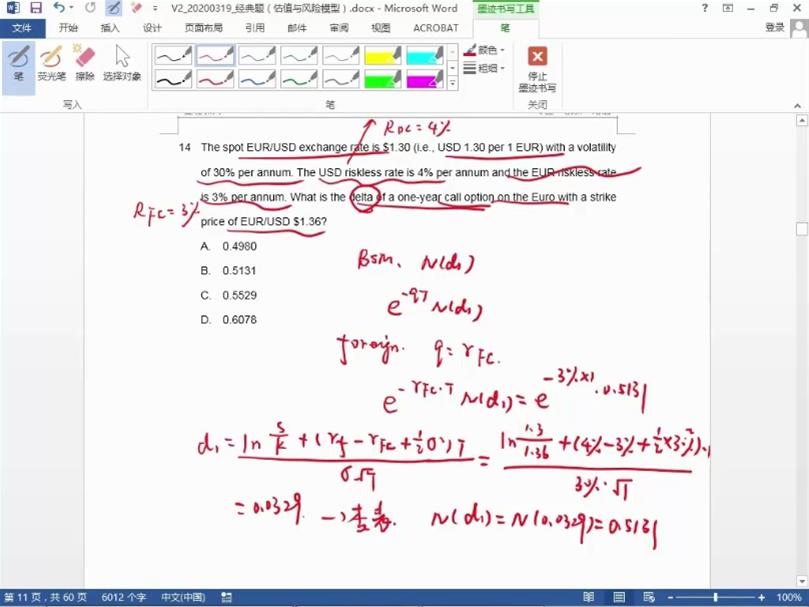 V2_20200319_经典题（估值与风险模型）.docx - Microsoft Word
墨迹书写工具
登录
文件 开始 插入 设计 页面布局 引用 邮件 审阅 视图 ACROBAT 笔
笔 荧光笔 擦除 选择对象
颜色
粗细
停止
墨迹书写
写入 笔 关闭
R_DC = 4%
14 The spot EUR/USD exchange rate is $1.30 (i.e., USD 1.30 per 1 EUR) with a volatility
of 30% per annum. The USD riskless rate is 4% per annum and the EUR riskless rate
is 3% per annum. What is the delta of a one-year call option on the Euro with a strike
R_FC = 3%
price of EUR/USD $1.36?
A. 0.4980
B. 0.5131
C. 0.5529
D. 0.6078
BSM、 N(d₁)
e^{-qT} N(d₁)
foreign. q = r_FC.
e^{-r_FC·T} N(d₁) = e^{-3%×1}·0.5131
d₁ = (ln S/K + (r_f - r_FC + ½σ²)T) / (σ√T) = (ln 1.3/1.36 + (4% - 3% + ½×30%²)·1) / (30%·√1)
= 0.0329. → 查表. N(d₁) = N(0.0329) = 0.5131
第 11 页，共 60 页 6012 个字 中文(中国) 100%